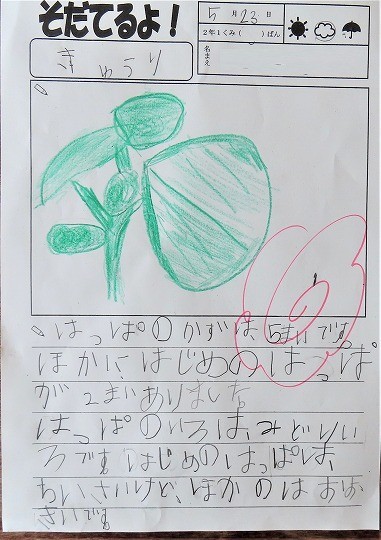 そだてるよ！
5月23日
2年1くみ( )ばん
名まえ
きゅうり
はっぱのかずは、5まいです。
ほかに、はじめのはっぱ
が2まいありました。
はっぱのいろは、みどりい
ろです。はじめのはっぱは、
ちいさいけど、ほかのはおお
きいです。